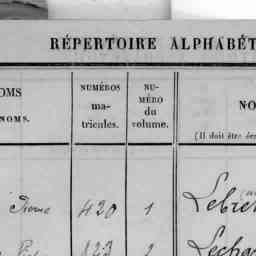 RÉPERTOIRE ALPHABÉT
OMS
NOMS.
NUMÉROS
ma-
tricules.
NU-
MÉRO
du
volume.
NO
(Il doit être
Pierre 420 1
423